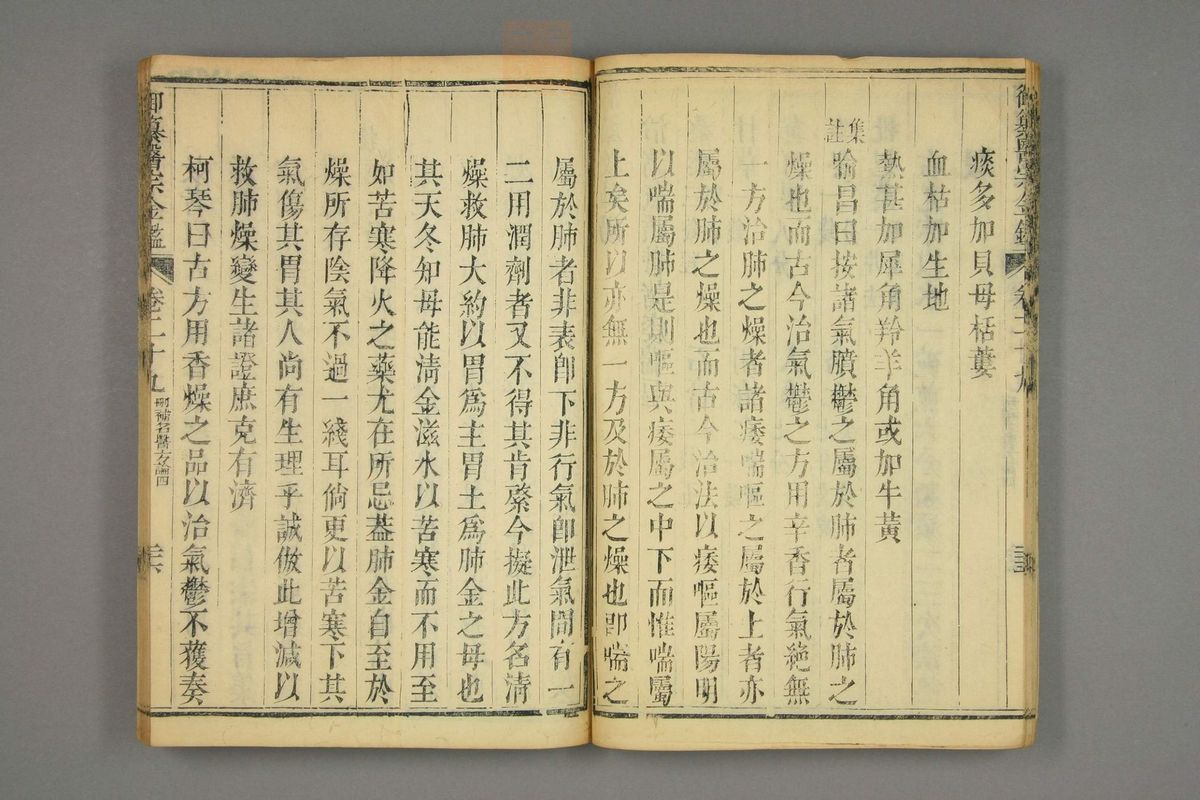 御纂醫宗金鑑 卷二十九
痰多加貝母栝蔞
血枯加生地
熱甚加犀角羚羊角或加牛黃
集註 喻昌曰按諸氣膹鬱之屬於肺者屬於肺之
燥也而古今治氣鬱之方用辛香行氣絶無
一方治肺之燥者諸痿喘嘔之屬於上者亦
屬於肺之燥也而古今治法以痿嘔屬陽明
以喘屬肺是則嘔與痿屬之中下而惟喘屬
上矣所以亦無一方及於肺之燥也即喘之
屬於肺者非表卽下非行氣卽泄氣間有一
二用潤劑者又不得其肯綮今擬此方名淸
燥救肺大約以胃爲主胃土爲肺金之母也
其天冬知母能淸金滋水以苦寒而不用至
如苦寒降火之藥尤在所忌葢肺金自至於
燥所存陰氣不過一綫耳倘更以苦寒下其
氣傷其胃其人尚有生理乎誠倣此增減以
救肺燥變生諸證庶克有濟
柯琴曰古方用香燥之品以治氣鬱不獲奏
御纂醫宗金鑑 卷二十九 刪補名醫方論四 三六